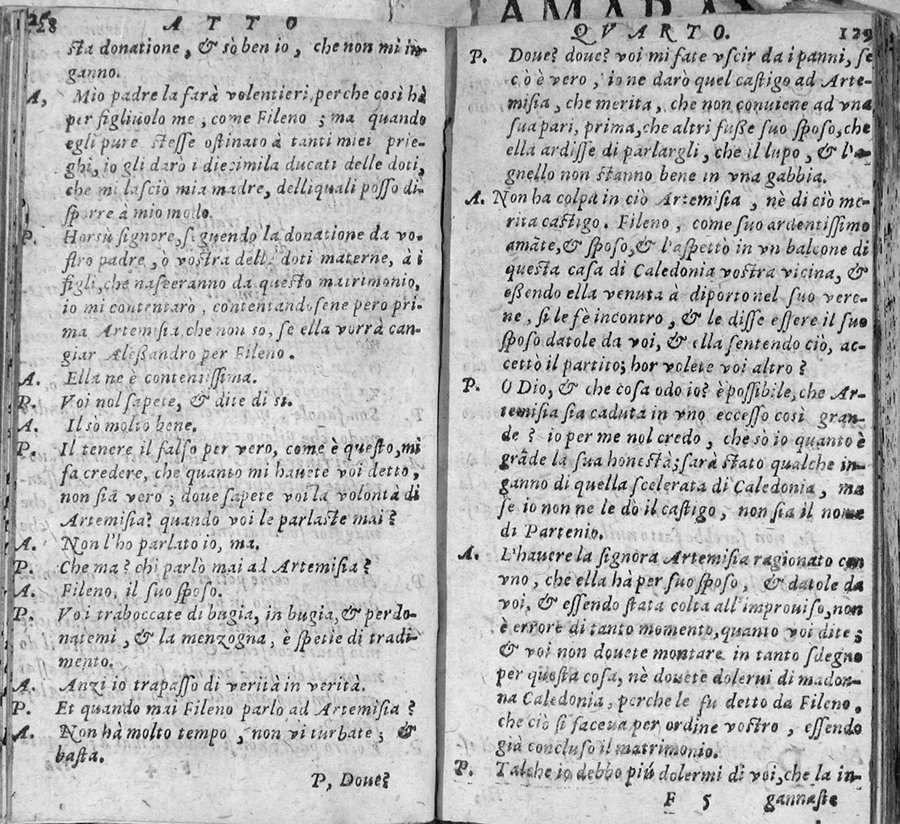 AMARA
128 ATTO
sta donatione, & sò ben io, che non mi in-
ganno.
A, Mio padre la farà volentieri, perche così hà
per figliuolo me, come Fileno; ma quando
egli pure stesse ostinato à tanti miei prie-
ghi, io gli darò i diecimila ducati delle doti,
che mi lasciò mia madre, delli quali posso di-
sporre à mio modo.
P. Horsù signore, seguendo la donatione da vo-
stro padre, ò vostra delle doti materne, à i
figli, che nasceranno da questo matrimonio,
io mi contentarò, contentandosene però pri-
ma Artemisia, che non so, se ella vorrà can-
giar Alessandro per Fileno.
A. Ella ne è contentissima.
P. Voi nol sapete, & dite di si.
A. Il sò molto bene.
P. Il tenere il falso per vero, come è questo, mi
fa credere, che quanto mi hauete voi detto,
non sia vero; doue sapete voi la volontà di
Artemisia? quando voi le parlaste mai?
A. Non l'ho parlato io, ma.
P. Che ma? chi parlo mai ad Artemisia?
A. Fileno, il suo sposo.
P. Voi traboccate di bugia, in bugia, & perdo-
natemi, & la menzogna, è spetie di tradi-
mento.
A. Anzi io trapasso di verità in verità.
P. Et quando mai Fileno parlo ad Artemisia?
A. Non hà molto tempo, non vi turbate; &
basta.
P, Doue?
QVARTO. 129
P. Doue? doue? voi mi fate vscir da i panni, se
cò è vero, io ne darò quel castigo ad Arte-
misia, che merita, che non conuiene ad vna
sua pari, prima, che altri fuße suo sposo, che
ella ardisse di parlargli, che il lupo, & l'a-
gnello non stanno bene in vna gabbia.
A. Non ha colpa in ciò Artemisia, nè di ciò me-
rita castigo. Fileno, come suo ardentissimo
amāte, & sposo, & l'aspettò in vn balcone di
questa casa di Caledonia vostra vicina, &
eßendo ella venuta à diporto nel suo vero-
ne, si le fè incontro, & le disse essere il suo
sposo datole da voi, & ella sentendo ciò, ac-
cettò il partito; hor volete voi altro?
P. O Dio, & che cosa odo io? è possibile, che Ar-
temisia sia caduta in vno eccesso così gran-
de? io per me nol credo, che sò io quanto è
grāde la sua honestà; sarà stato qualche in-
ganno di quella scelerata di Caledonia, ma
se io non ne le dò il castigo, non sia il nome
di Partenio.
A. L'hauere la signora Artemisia ragionato con
vno, che ella hà per suo sposo, & datole da
voi, & essendo stata colta all'improuiso, non
è errore di tanto momento, quanto voi dite;
& voi non douete montare in tanto sdegno
per questa cosa, nè douete dolerui di madon-
na Caledonia, perche le fu detto da Fileno.
che ciò si faceua per ordine vostro, essendo
già concluso il matrimonio.
P. Talche io debbo più dolermi di voi, che la in-
F 5 gannaste